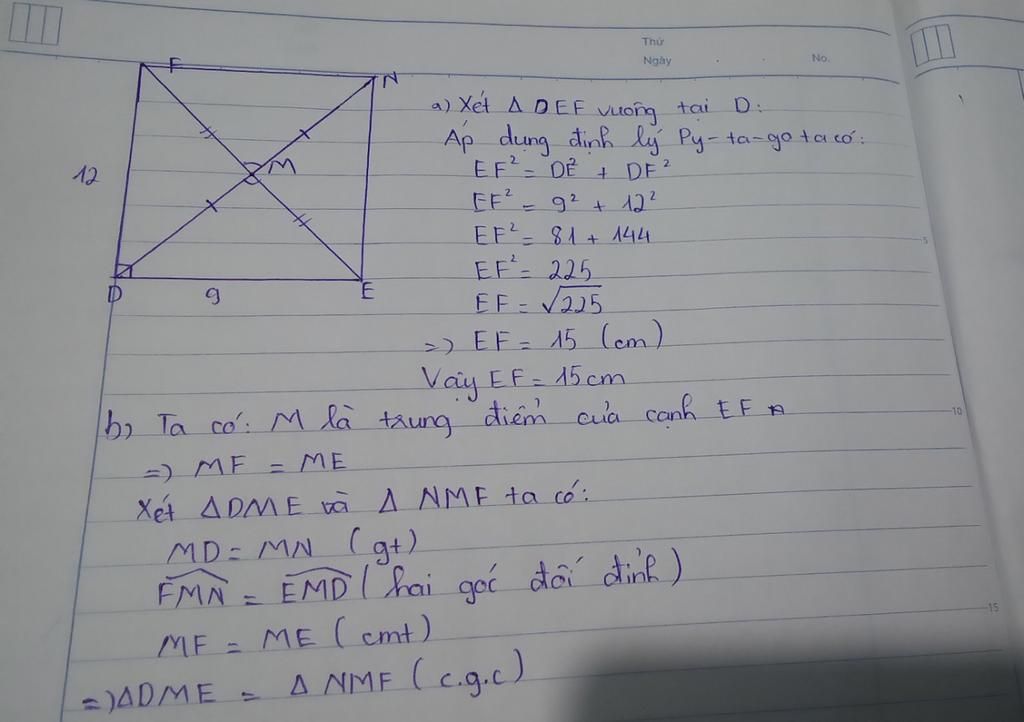 Thứ
Ngày . . No.
F
N
M
12
D
9
E
a) Xét Δ DEF vuông tại D:
Áp dụng định lý Py-ta-go ta có:
EF² = DE² + DF²
EF² = 9² + 12²
EF² = 81 + 144
EF² = 225
EF = √225
=> EF = 15 (cm)
Vậy EF = 15cm
b) Ta có: M là trung điểm của cạnh EF
=> MF = ME
Xét ΔDME và Δ NMF ta có:
MD = MN (gt)
\widehat{FMN} = \widehat{EMD} (hai góc đối đỉnh)
MF = ME (cmt)
=> ΔDME = Δ NMF (c.g.c)
5
10
15